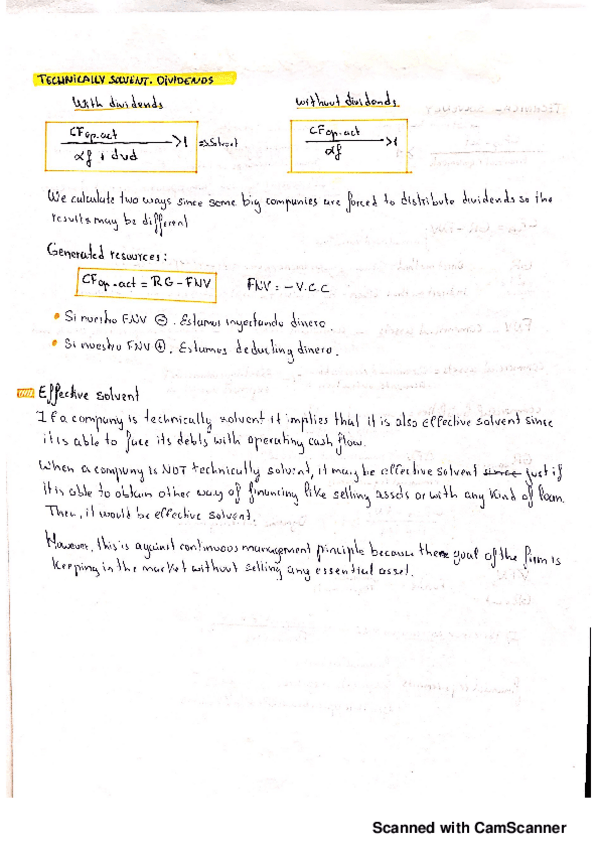 TECHNICALLY SOLVENT. DIVIDENDS
With dividends
without dividends
CFop.act / αf + dvd >1 => Solvent
CFop.act / αf >1
We calculate two ways since some big companies are forced to distribute dividends so the
results may be different
Generated resources:
CFop.act = RG - FNV
FNV: - V.C.C
Si nuestro FNV ⊖. Estamos inyectando dinero.
Si nuestro FNV ⊕. Estamos deducting dinero.
Effective solvent
If a company is technically solvent it implies that it is also effective solvent since
it is able to face its debts with operating cash flow.
When a company is NOT technically solvent, it may be effective solvent since just if
it is able to obtain other way of financing like selling assets or with any kind of loan.
Then, it would be effective solvent.
However, this is against continuous management principle because there goal of the firm is
keeping in the market without selling any essential asset.
Scanned with CamScanner